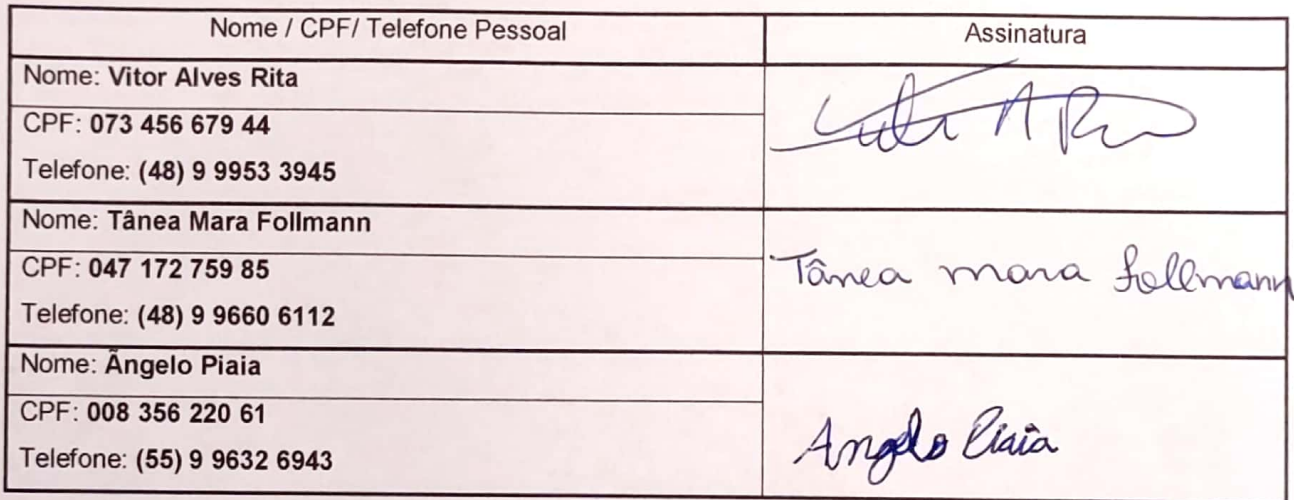 Nome / CPF/ Telefone Pessoal
Assinatura
Nome: Vitor Alves Rita
CPF: 073 456 679 44
Telefone: (48) 9 9953 3945
Nome: Tânea Mara Follmann
CPF: 047 172 759 85
Telefone: (48) 9 9660 6112
Tânea mara follmann
Nome: Ãngelo Piaia
CPF: 008 356 220 61
Telefone: (55) 9 9632 6943
Angelo Piaia